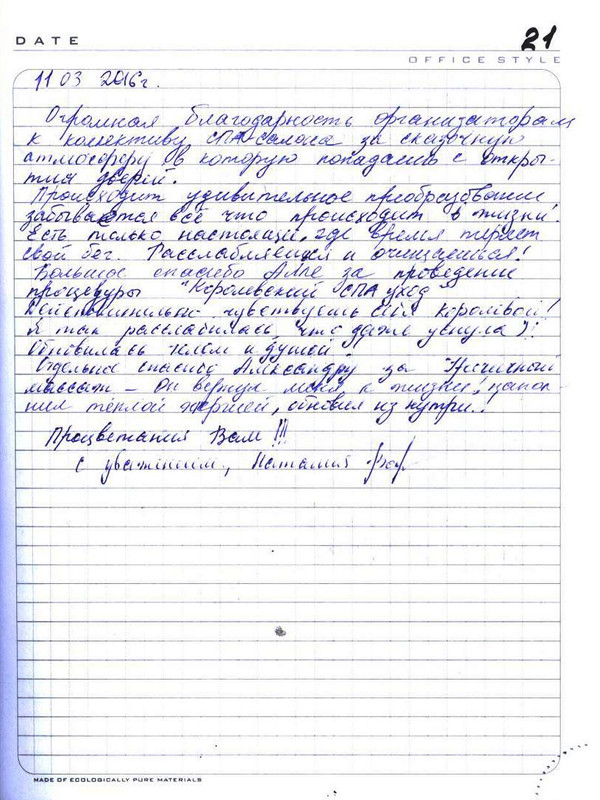 DATE
21
OFFICE STYLE
11 03 2016г.
Огромная благодарность организаторам
к коллективу СПА-салона за сказочную
атмосферу в которую попадаешь с откры-
тия дверей.
Происходит удивительное преобразование
забывается всё что происходит в жизни.
Есть только настоящее, где время теряет
свой бег. Расслабляешься и очищаешься!
Большое спасибо Алле за проведение
процедуры "Королевский СПА уход"
Действительно чувствуешь себя королевой!
Я так расслабилась, что даже уснула)!
Обновилась телом и душой.
Отдельное спасибо Александру за
массаж – Он вернул меня к жизни!, напол-
нил тёплой энергией, обновил из нутри!
Процветания Вам!!!
с уважением, Наталия
MADE OF ECOLOGICALLY PURE MATERIALS